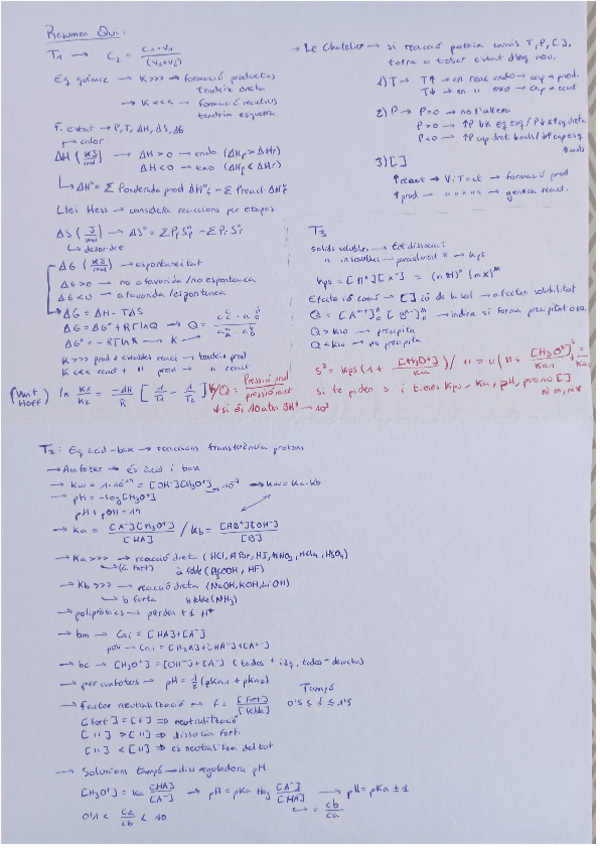 Resumen Qui.
T1 → C2 = C1·V1 / (V1+V2)
Eq químic → K>>> → formació productes
tendeix dreta
→ K<<< → formació reactius
tendeix esquerra
F. estat → P, T, ΔH, ΔS, ΔG
→ calor
ΔH (KJ/mol) → ΔH>0 → endo (ΔHp > ΔHr)
ΔH<0 → exo (ΔHp < ΔHr)
↳ ΔH° = Σ Ponderada prod ΔH°f - Σ P react ΔH°f
Llei Hess → consdera reaccions per etapes.
ΔS (J/mol) → ΔS° = ΣPf S°f - ΣPi S°i
↳ desordre
ΔG (KJ/mol) → espontaneitat
ΔG>0 → no afavorida / no espontanea
ΔG<0 → afavorida / espontanea
↳ ΔG = ΔH - TΔS
ΔG = ΔG° + RTlnQ → Q =
ΔG° = -RTlnK → K
K>>> prod + estables reacti → tendeix prod
K<<< react + " prod → " react
(Vant Hoff) ln K1/K2 = -ΔH/R [1/T2 - 1/T1]
K/Q = Pressió prod / pressió react
* si és 10 atm 3H⁺ → 10³
→ Le Chatelier → si reacció pateix canvis T, P, [ ],
torna a trobar estat d'eq nou.
1) T → T↑ → en reac endo → cap a prod.
T↓ → en " exo → cap a react
2) P → P=0 → no l'altera
P>0 → ↑P
P<0 → ↑P cap dret
3) [ ]
↑react → → formació prod
↑prod → " " " " → genera react.
T3
Solids solubles → tot dissociat
" insolubles → parcialment " → Kps
Kps = [M⁺]ⁿ[X⁻]ᵐ = (nM)ⁿ (mX)ᵐ
Efecte ió comú → [ ] ió de la sal → afectes solubilitat
Q = [A⁺]ⁿ₀ [B⁻]ᵐ₀ → indica si forma precipitat o no.
Q > Kps → precipita
Q < Kps → no precipita
S² = Kps (1 + [H3O⁺]/Ka)
si te piden s i tienes Kps, Ka, pH, pero no [ ]
ni m, mx
T2: Eq àcid-base → reaccions transferència protons
→ Amfòter → és àcid i base
→ Kw = 1·10⁻¹⁴ = [OH⁻][H3O⁺] → Kw = Ka·Kb
→ pH = -log[H3O⁺]
pH + pOH = 14
→ Ka = [A⁻][H3O⁺] / [HA] / Kb = [HB⁺][OH⁻] / [B]
→ Ka>>> → reacció dreta (HCl, HBr, HI, HNO3, HClO4, H2SO4)
↳ (à fort) à feble (AcOOH, HF)
→ Kb>>> → reacció dreta (NaOH, KOH, LiOH)
↳ b forta b feble (NH3)
→ polipròtics → perden +1 H⁺
→ bm → Cai = [HA]+[A⁻]
pov → Cai = [H2A]+[HA⁻]+[A²⁻]
→ bc → [H3O⁺] = [OH⁻]+[A⁻] (todos + izq, todos - derechos)
→ per amfoters → pH = ½ (pKa1 + pKa2)
→ Factor neutralització → f = [fort] / [feble]
Tampó
0'5 ≤ f ≤ 1'5
[fort] = [f] ⇒ neutralització
[ " ] > [ " ] ⇒ dissocia fort.
[ " ] < [ " ] ⇒ es neutralitza del tot
→ Solucions tampó → diss reguladora pH
[H3O⁺] = Ka [HA]/[A⁻] → pH = pKa + log [A⁻]/[HA] → pH = pKa ± 1
0'1 < Ca/Cb < 10
↳ = cb/ca